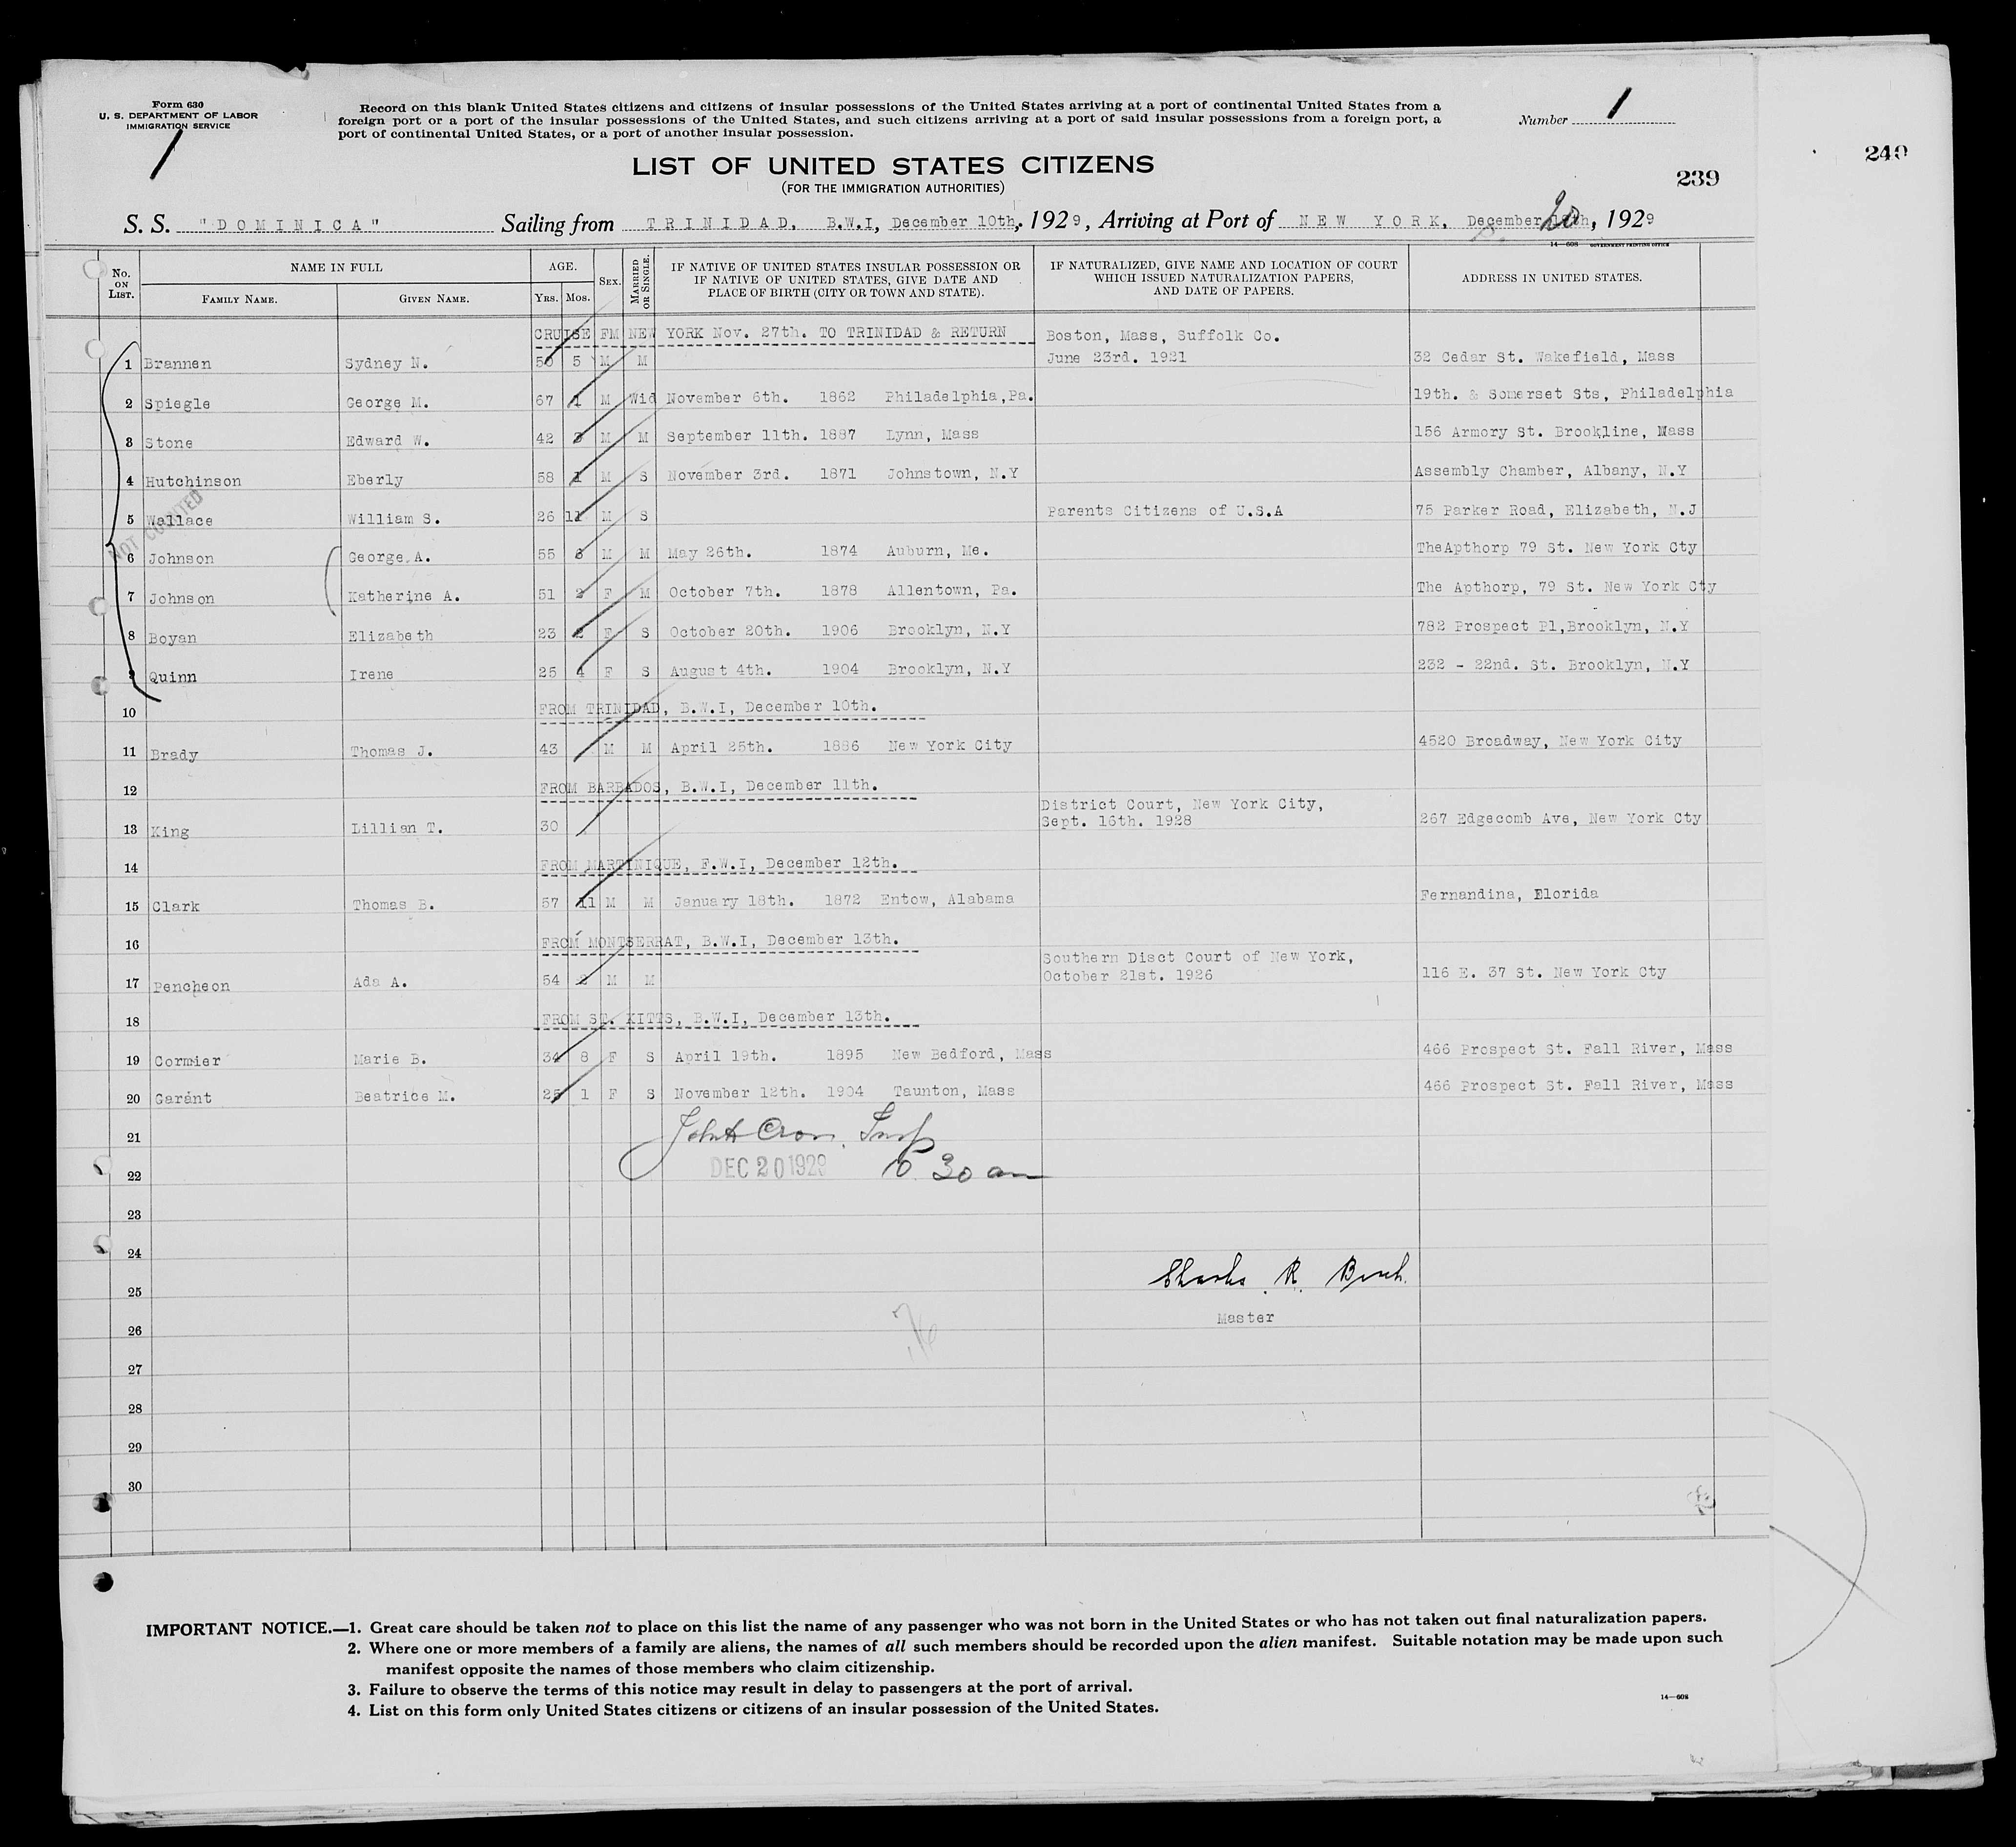 Form 630
U. S. DEPARTMENT OF LABOR
IMMIGRATION SERVICE
1
Record on this blank United States citizens and citizens of insular possessions of the United States arriving at a port of continental United States from a
foreign port or a port of the insular possessions of the United States, and such citizens arriving at a port of said insular possessions from a foreign port, a
port of continental United States, or a port of another insular possession.
Number 1
240
LIST OF UNITED STATES CITIZENS
(FOR THE IMMIGRATION AUTHORITIES)
239
S. S. "DOMINICA" Sailing from TRINIDAD, B.W.I, December 10th, 1929, Arriving at Port of NEW YORK, December 20, 1929
14—608 GOVERNMENT PRINTING OFFICE
No. ON LIST. NAME IN FULL FAMILY NAME. GIVEN NAME. AGE. Yrs. Mos. SEX. MARRIED OR SINGLE. IF NATIVE OF UNITED STATES INSULAR POSSESSION OR IF NATIVE OF UNITED STATES, GIVE DATE AND PLACE OF BIRTH (CITY OR TOWN AND STATE). IF NATURALIZED, GIVE NAME AND LOCATION OF COURT WHICH ISSUED NATURALIZATION PAPERS, AND DATE OF PAPERS. ADDRESS IN UNITED STATES.
CRUISE FM NEW YORK Nov. 27th. TO TRINIDAD & RETURN Boston, Mass, Suffolk Co.
1 Brannen Sydney N. 50 5 M M June 23rd. 1921 32 Cedar St. Wakefield, Mass
2 Spiegle George M. 67 1 M Wid November 6th. 1862 Philadelphia,Pa. 19th. & Somerset Sts, Philadelphia
3 Stone Edward W. 42 3 M M September 11th. 1887 Lynn, Mass 156 Armory St. Brookline, Mass
4 Hutchinson Eberly 58 1 M S November 3rd. 1871 Johnstown, N.Y Assembly Chamber, Albany, N.Y
NOT COUNTED
5 Wallace William S. 26 11 M S Parents Citizens of U.S.A 75 Parker Road, Elizabeth, N.J
6 Johnson George A. 55 6 M M May 26th. 1874 Auburn, Me. TheApthorp 79 St. New York Cty
7 Johnson Katherine A. 51 2 F M October 7th. 1878 Allentown, Pa. The Apthorp, 79 St. New York Cty
8 Boyan Elizabeth 23 2 F S October 20th. 1906 Brooklyn, N.Y 782 Prospect Pl,Brooklyn, N.Y
9 Quinn Irene 25 4 F S August 4th. 1904 Brooklyn, N.Y 232 - 22nd. St. Brooklyn, N.Y
10 FROM TRINIDAD, B.W.I, December 10th.
11 Brady Thomas J. 43 M M April 25th. 1886 New York City 4520 Broadway, New York City
12 FROM BARBADOS, B.W.I, December 11th.
District Court, New York City,
13 King Lillian T. 30 Sept. 16th. 1928 267 Edgecomb Ave, New York Cty
14 FROM MARTINIQUE, F.W.I, December 12th.
15 Clark Thomas B. 57 11 M M January 18th. 1872 Entow, Alabama Fernandina, Elorida
16 FROM MONTSERRAT, B.W.I, December 13th.
Southern Disct Court of New York,
17 Pencheon Ada A. 54 2 M M October 21st. 1926 116 E. 37 St. New York Cty
18 FROM ST. KITTS, B.W.I, December 13th.
19 Cormier Marie B. 34 8 F S April 19th. 1895 New Bedford, Mass 466 Prospect St. Fall River, Mass
20 Garant Beatrice M. 25 1 F S November 12th. 1904 Taunton, Mass 466 Prospect St. Fall River, Mass
21 Insp
22 DEC 20 1929 10 30 am
23
24
25 Charles R.
Master
26
27
28
29
30
IMPORTANT NOTICE.—1. Great care should be taken not to place on this list the name of any passenger who was not born in the United States or who has not taken out final naturalization papers.
2. Where one or more members of a family are aliens, the names of all such members should be recorded upon the alien manifest. Suitable notation may be made upon such
manifest opposite the names of those members who claim citizenship.
3. Failure to observe the terms of this notice may result in delay to passengers at the port of arrival.
4. List on this form only United States citizens or citizens of an insular possession of the United States.
14—608